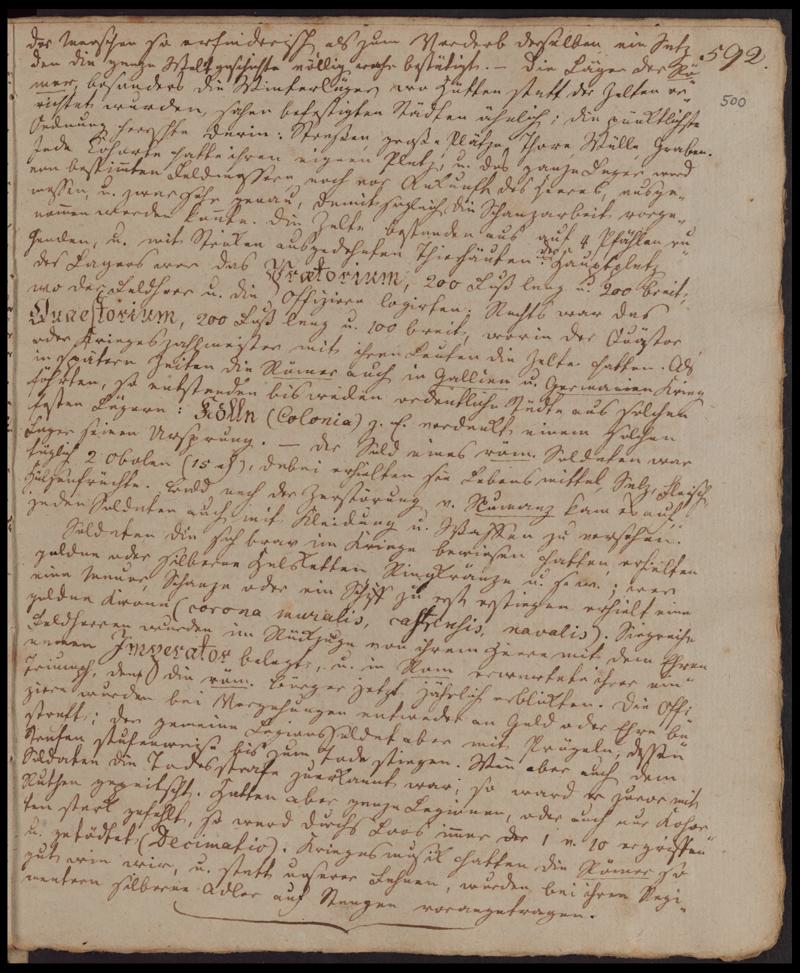 der Menschen so erfinderisch als zum Verderb derselben, ein Satz
592.
den die ganze Weltgeschichte völlig wahr bestätigt. — Die Läger der Rö-
500
mer, besonders die Winterläger, wo Hütten statt der Zelten er-
richtet wurden, sahen befestigten Städten ähnlich; die pünktlichste
Ordnung herrschte darin: Straßen, große Plätze, Thore, Wälle, Graben.
Jede Cohorte hatte ihren eigenen Platz, u. das ganze Lager ward
von bestimten Feldmessern noch vor Ankunft des Heeres, ausge-
messen, u. zwar sehr genau, damit sogleich die Schanzarbeit vorge-
nommen werden konnte. Die Zelte bestanden aus auf 4 Pfählen ru-
henden, u. mit Striken ausgedehnten Thierhäuten. Der Hauptplatz
des Lagers war das Praetorium, 200 Fuß lang u. 200 breit,
wo der Feldherr u. die Offiziere logirten; Rechts war das
Quaestorium, 200 Fuß lang u. 100 breit, worin der Quästor
oder Kriegszahlmeister mit ihren Leuten die Zelte hatten. Als
in spätern Zeiten die Römer auch in Gallien u. Germanien Krieg
führten, so entstanden bisweilen ordentliche Städte aus solchen
festen Lägern: Kölln (Colonia) z. E. verdankt einem solchen
Lager seinen Ursprung. — Der Sold eines röm. Soldaten war
täglich 2 Obolen (15 ), dabei erhielten sie Lebensmittel, Salz, Fleisch,
Hülsenfrüchte. Bald nach der Zerstörung v. Numanz kam es auf,
jeden Soldaten auch mit Kleidung u. Waffen zu versehen.
Soldaten die sich brav im Kriege bewiesen hatten, erhielten
goldne oder silberne Halsketten, Ringkränze u. s. w.; wer
eine Mauer, Schanze oder ein Schiff zu erst erstiegen erhielt eine
goldne Krone (corona muralis, castrensis, navalis). Siegreiche
Feldherren wurden im Rückzuge von ihrem Heere mit dem Ehren-
namen Imperator belegt, u. in Rom erwartete ihrer ein
Triumph, den die röm. Bürger jetzt jährlich erblikten. Die Offi-
ziere wurden bei Vergehungen entweder an Geld oder Ehre be-
straft; der gemeine Legionssoldat aber mit Prügeln, dessen
Strafen stufenweise bis zum Tode stiegen. Wenn aber auch dem
Soldaten die Todesstrafe zuerkannt war; so ward er zuvor mit
Ruthen gepeitscht. Hatten aber ganze Legionen, oder auch nur Kohor-
ten stark gefehlt, so ward durchs Loos immer der 1 v. 10 ergriffen
u. getödtet (Decimatio). Kriegsmusik hatten die Römer so
gut wie wir, u. statt unserer Fahnen, wurden bei ihren Regi-
mentern silberne Adler auf Stangen vorangetragen.